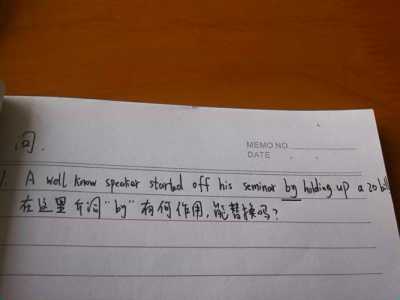 问.
MEMO NO.
DATE
1. A well know speaker started off his seminar by holding up a 20 bil
在这里介词"by"有何作用,能替换吗?